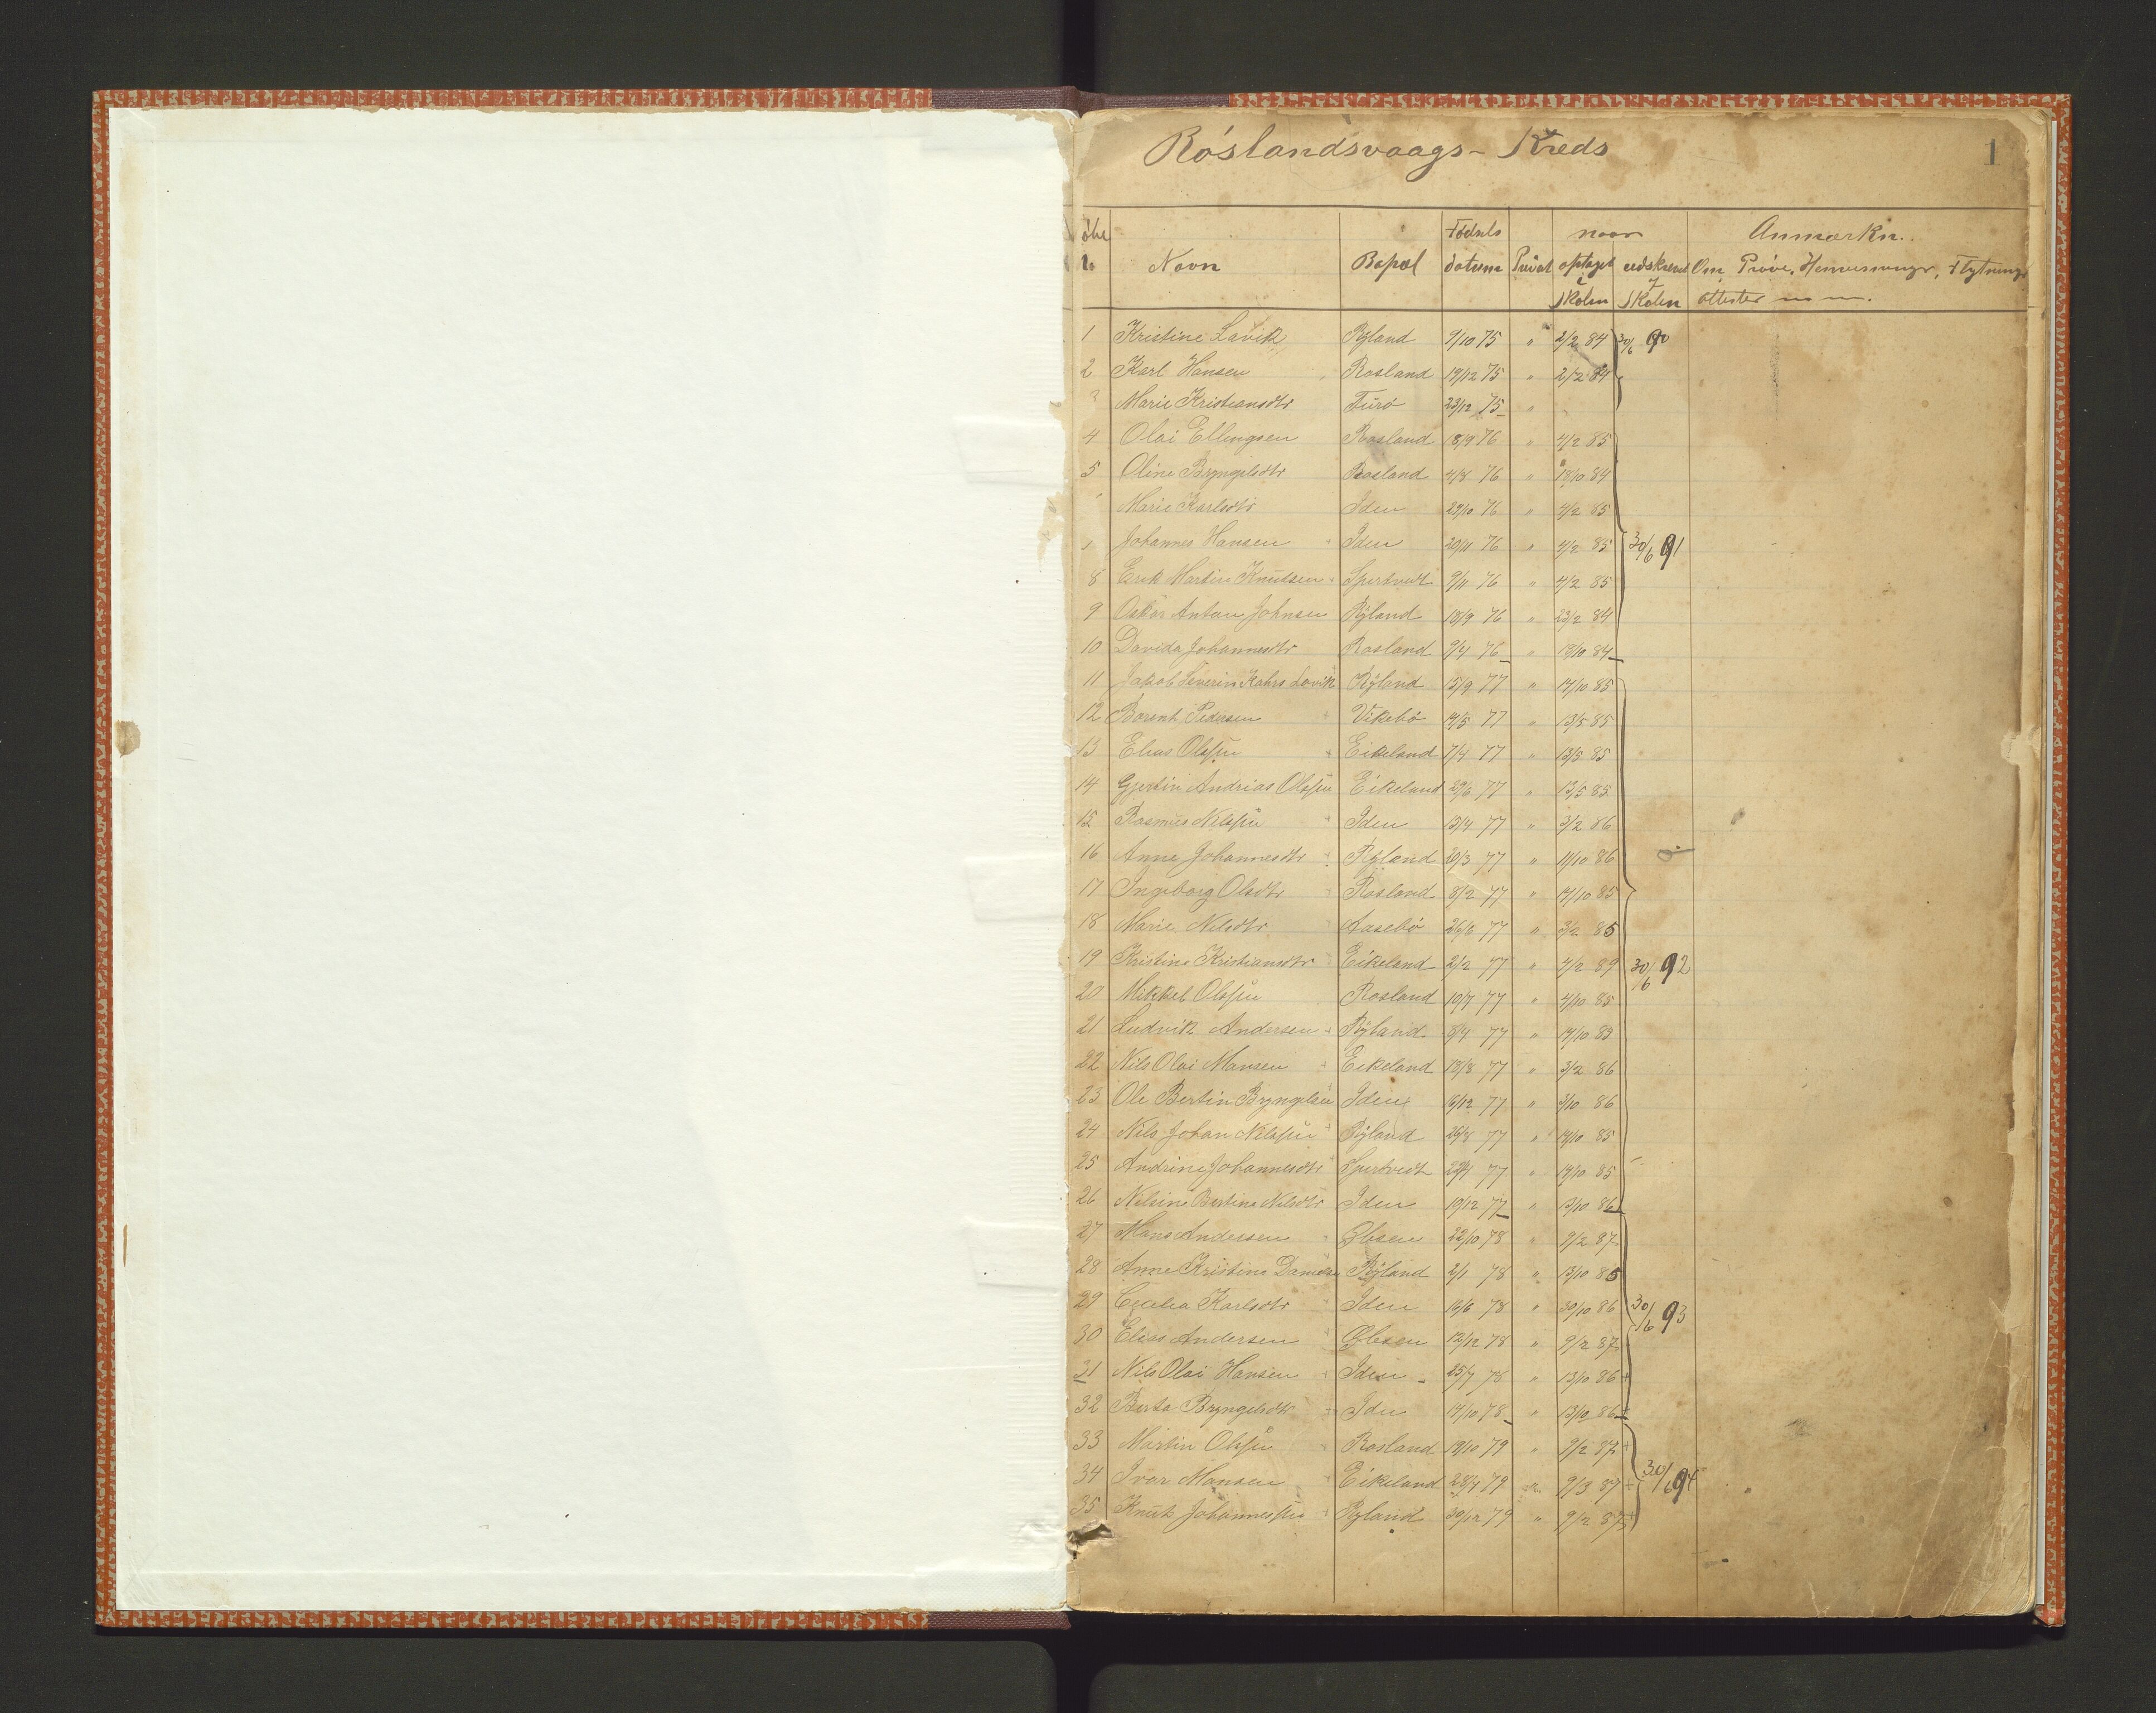 Róslandsvaags - Kreds
1
Navn Bopæl Fødsels datum Privat naar optaget i Skolen udskrevet Skolen Anmærkn.
Om Prøve, Henvisninger, Flytnings attester m m.
1 Kristine Lavik Ryland 9/10 75 " 2/2 84 30/6 90
2 Karl Hansen Rosland 19/12 75 " 2/2 84
Marie Kristiansdtr Turö 23/12 75 "
4 Olai Ellingsen Rosland 18/9 76 " 4/2 85
5 Oline Bryngelsdtr Rosland 4/8 76 " 18/10 84
Marie Karlsdtr Iden 29/10 76 " 4/2 85
Johannes Hansen Iden 20/11 76 " 4/2 85 30/6 91
8 Erik Martin Knutsen Spertvedt 9/11 76 " 4/2 85
9 Oskar Antan Johnsen Ryland 18/9 76 " 23/2 84
10 Davida Johannesdtr Rosland 9/4 76 " 18/10 84
11 Jakob Severin Kahrs Lavik Ryland 15/9 77 " 14/10 85
12 Borent Pedersen Vikebö 14/5 77 " 13/5 85
13 Elias Olssen Eikeland 7/4 77 " 13/5 85
14 Gjertin Andrias Olssen Eikeland 29/6 77 " 13/5 85
15 Rasmus Nilssen Iden 13/4 77 " 3/2 86
16 Anne Johannesdtr Ryland 20/3 77 " 11/10 86
17 Ingeborg Olsdtr Rosland 8/2 77 " 14/10 85
18 Marie Nilsdtr Aasebö 26/6 77 " 3/2 85
19 Kristine Kristiansdtr Eikeland 2/2 77 " 4/2 89 30/6 92
20 Mikkel Olssen Rosland 10/7 77 " 4/10 85
21 Ludvik Andersen Ryland 8/4 77 " 14/10 83
22 Nils Olai Monsen Eikeland 18/8 77 " 3/2 86
23 Ole Bertin Bryngelsen Iden 16/12 77 " 3/10 86
24 Nils Johan Nilssen Ryland 29/8 77 " 14/10 85
25 Andrine Johannesdtr Spertvedt 22/4 77 " 14/10 85
26 Nilsine Bertine Nilsdtr Iden 19/12 77 " 13/10 86
27 Mons Andersen Øbsen 22/10 78 " 9/2 87
28 Anne Kristine Ryland 2/1 78 " 13/10 85
29 Cecilia Karlsdtr Iden 16/6 78 " 30/10 86 30/6 93
30 Elias Andersen Øbsen 12/12 78 " 9/2 87
31 Nils Olai Hansen Iden 25/7 78 " 13/10 86 +
32 Berta Bryngelsdtr Iden 14/10 78 " 13/10 86 +
33 Martin Olssen Rosland 19/10 79 " 9/2 87 +
34 Ivar Monsen Eikeland 28/4 79 " 9/3 87 + 30/6 94
35 Knut Johannessen Ryland 30/12 79 " 9/2 87 +